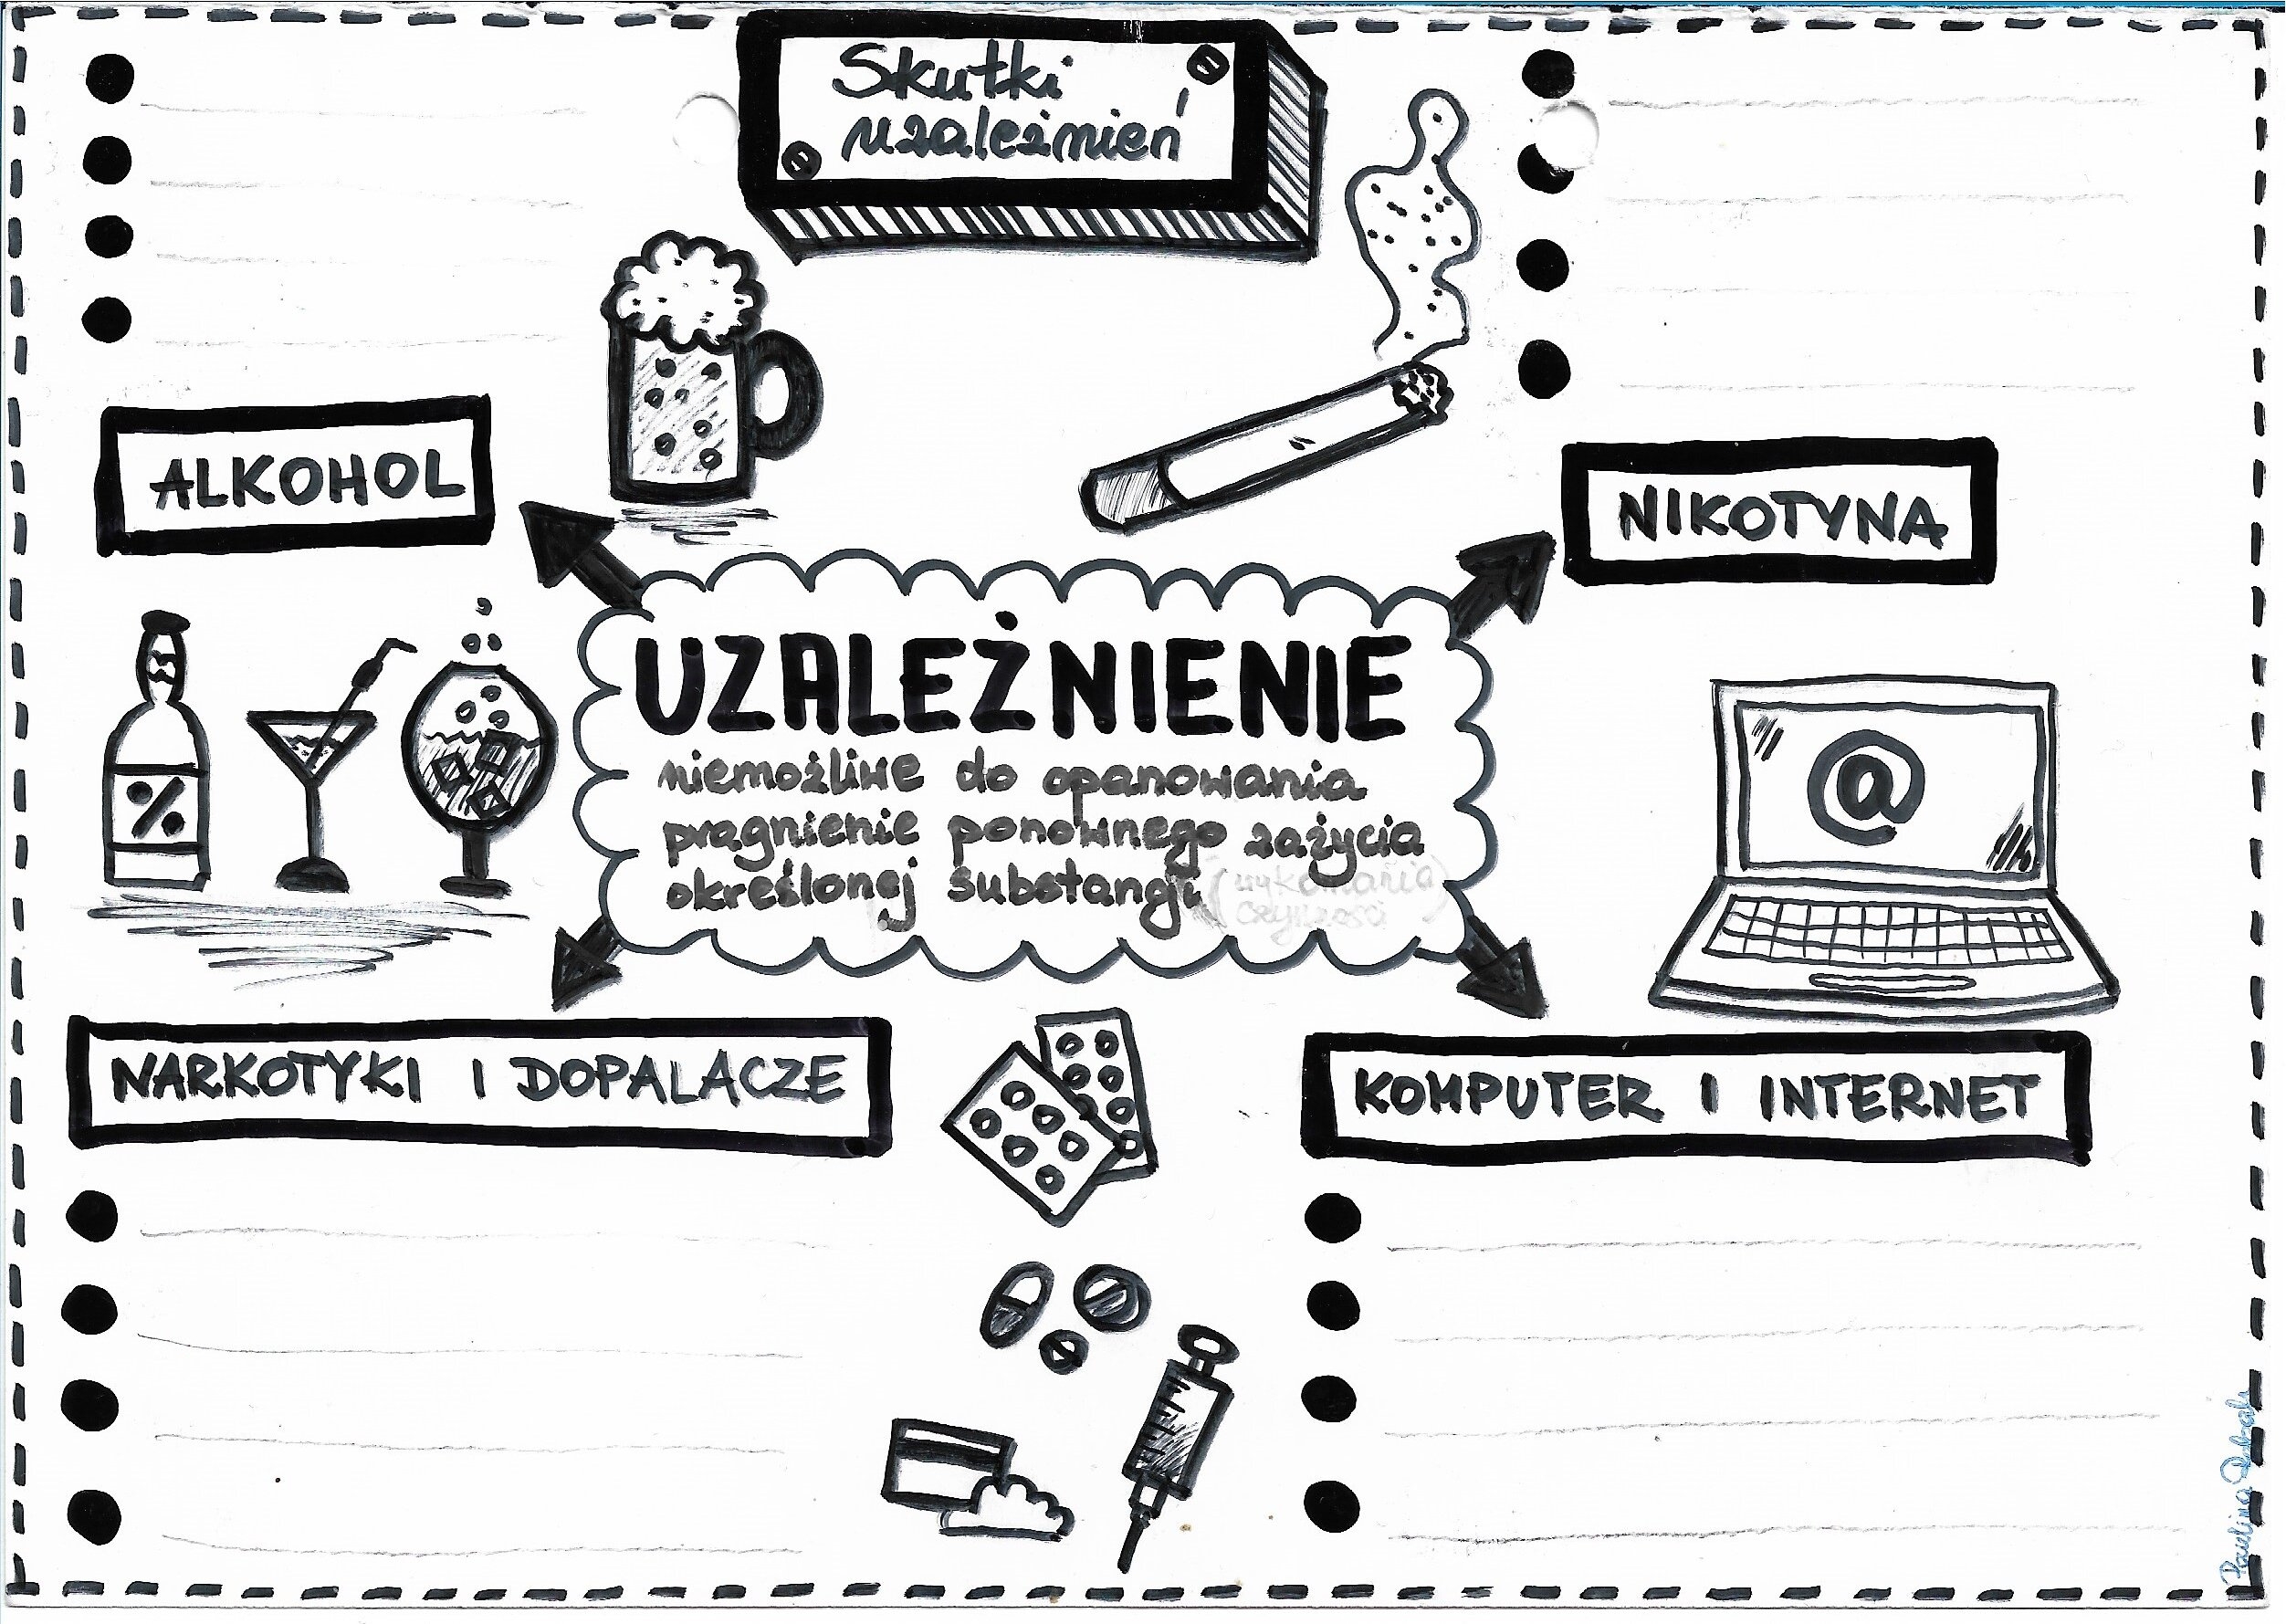 Skutki
uzależnień
ALKOHOL
NIKOTYNA
%
@
UZALEŻNIENIE
niemożliwe do opanowania
pragnienie ponownego zażycia
określonej substancji (wykonania
czynności)
NARKOTYKI I DOPALACZE
KOMPUTER I INTERNET
Paulina